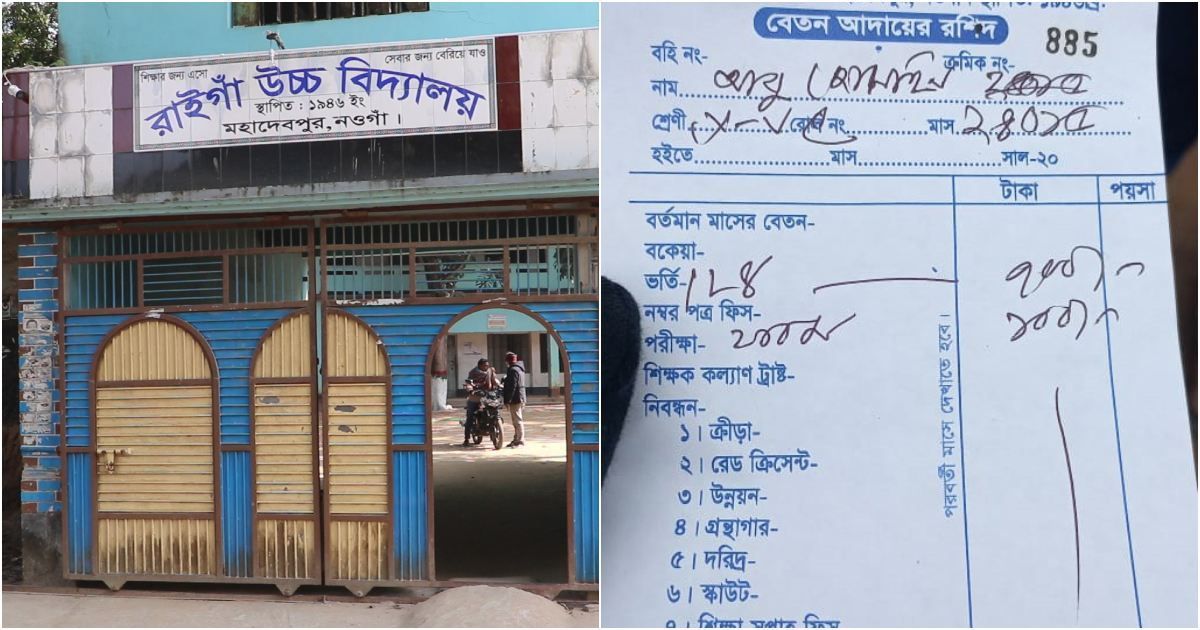 শিক্ষার জন্য এসো
সেবার জন্য বেরিয়ে যাও
রাইগাঁ উচ্চ বিদ্যালয়
স্থাপিত : ১৯৪৬ ইং
মহাদেবপুর, নওগাঁ ।
বেতন আদায়ের রশিদ
885
বহি নং-
ক্রমিক নং-
নাম
শ্রেণী
রোল নং
মাস
হইতে
মাস
সাল-২০
টাকা
পয়সা
বর্তমান মাসের বেতন-
বকেয়া-
ভর্তি-
নম্বর পত্র ফিস-
পরীক্ষা-
শিক্ষক কল্যাণ ট্রাষ্ট-
নিবন্ধন-
১। ক্রীড়া-
২। রেড ক্রিসেন্ট-
৩। উন্নয়ন-
৪। গ্রন্থাগার-
৫। দরিদ্র-
৬। স্কাউট-
পরবর্তী মাসে দেখাতে হবে।